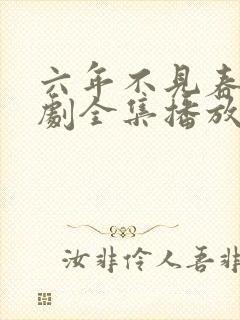 六年不見春
劇全集播放
汝非伶人吾非